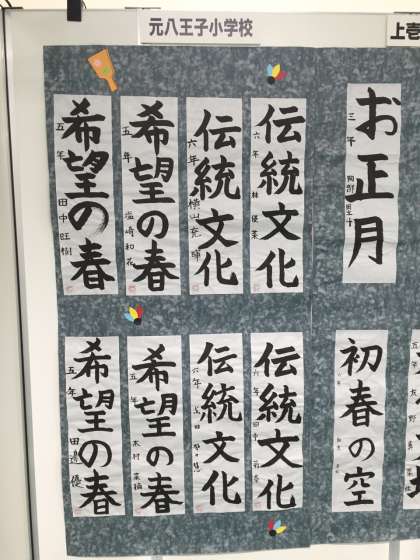 元八王子小学校
上壱
お正月
三年
伝統文化
六年 林優菜
伝統文化
六年
希望の春
五年 塩崎和花
希望の春
五年 田中旺樹
初春の空
伝統文化
六年 田中
伝統文化
六年
希望の春
五年 木村菜緒
希望の春
五年 田邉優